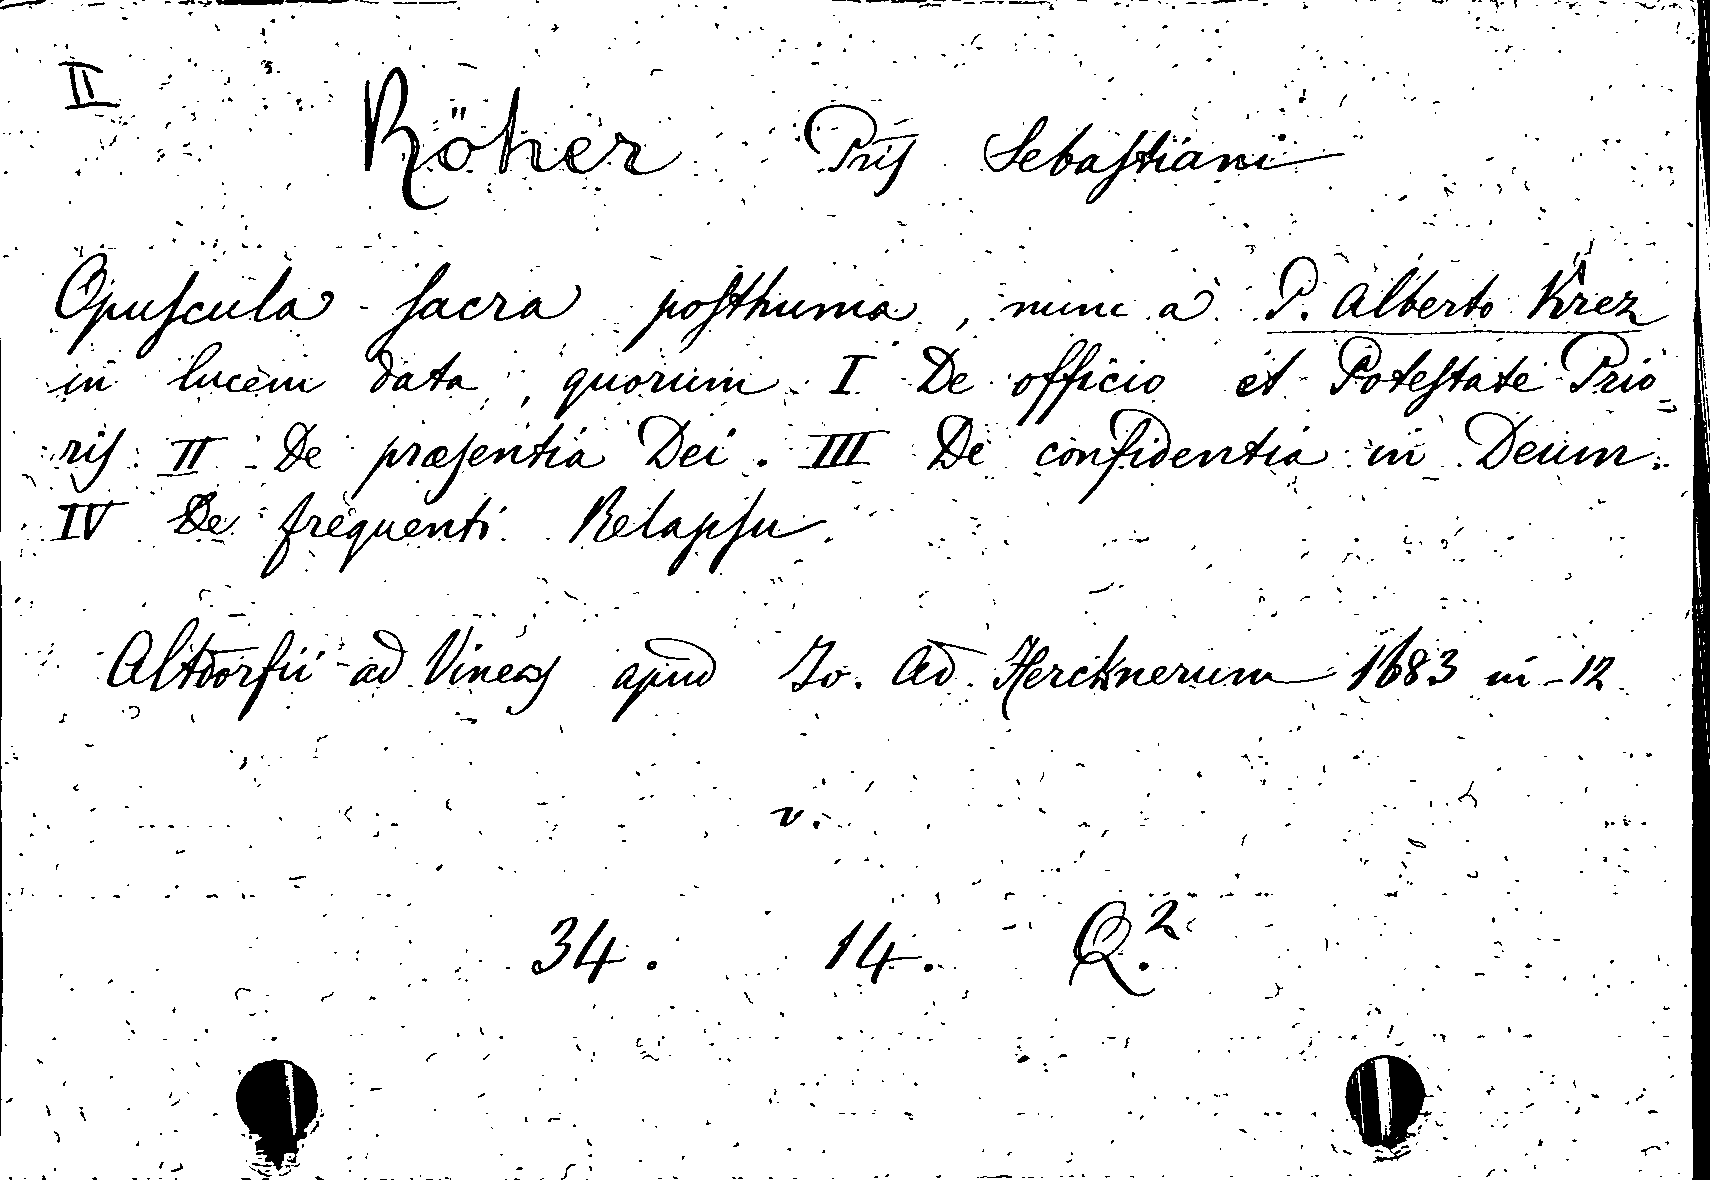 II
Röher Pris Sebastiani
Opuscula sacra posthuma, nunc à P. Alberto Krez
in lucem data, quorum I De officio et Potestate Prio-
ris II De præsentia Dei. III De confidentia in Deum.
IV De frequenti Relapsu.
Altdorfii ad Vineas apud Jo. Ad. Hercknerum 1683 in-12
v.
34. 14. Q.2